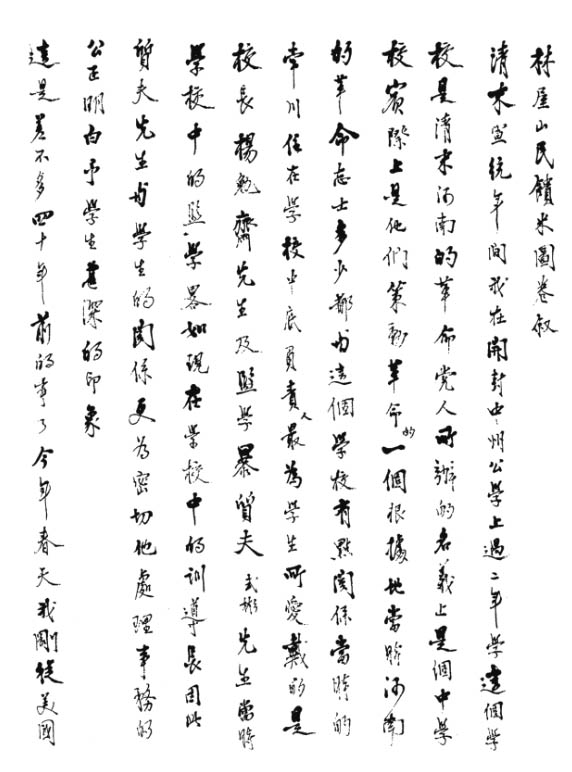 林屋山民饋米圖卷敘
清末宣統年間我在開封中州公學上過二年學這個學
校是清末河南的革命党人所辦的名義上是個中學
校實際上是他們策動革命的一個根據地當時河南
的革命志士多少都与這個學校有點関係當時的
學校中底負責人最為學生所愛戴的是
校長楊勉齋先生及監學暴質夫式彬先生當時
學校中的監學畧如現在學校中的訓導長因此
質夫先生与學生的関係更為密切他處理事務的
公正明白予學生甚深的印象
這是差不多四十年前的事了今年春天我剛從美國